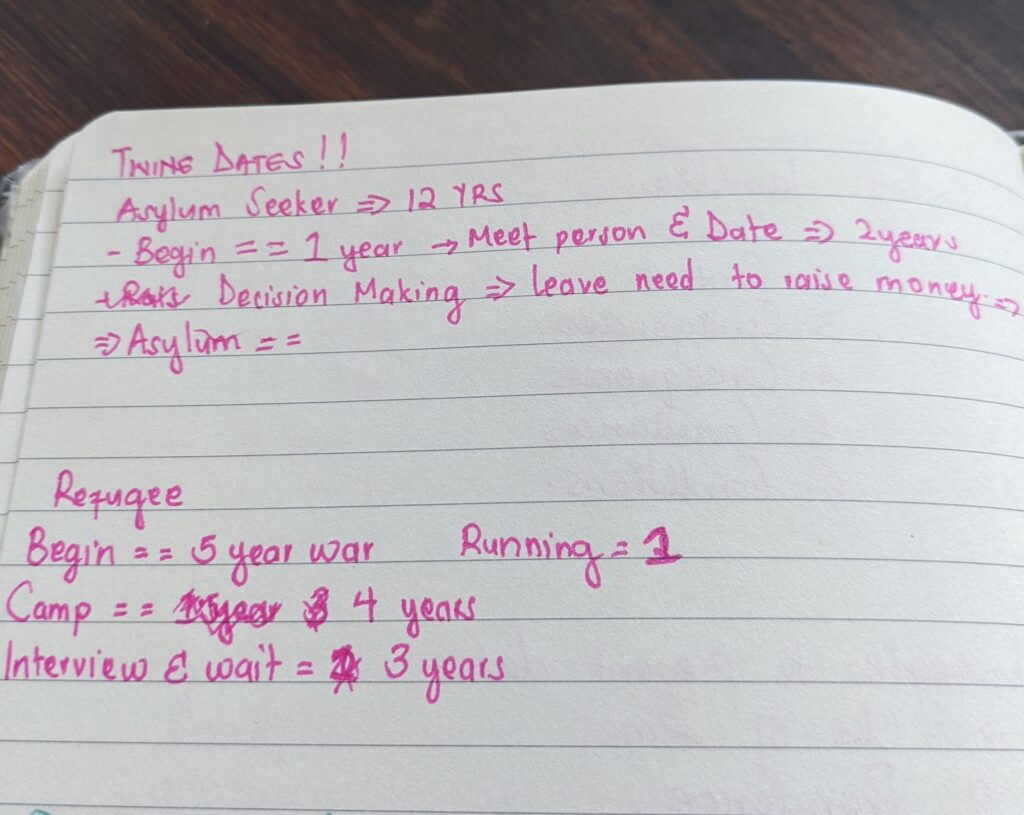 TWINE DATES!!
Asylum Seeker => 12 YRS
- Begin == 1 year → Meet person & Date => 2years
Decision Making => leave need to raise money. =>
=> Asylum ==
Refugee
Begin == 5 year war Running = 1
Camp == 4 years
Interview & wait = 3 years